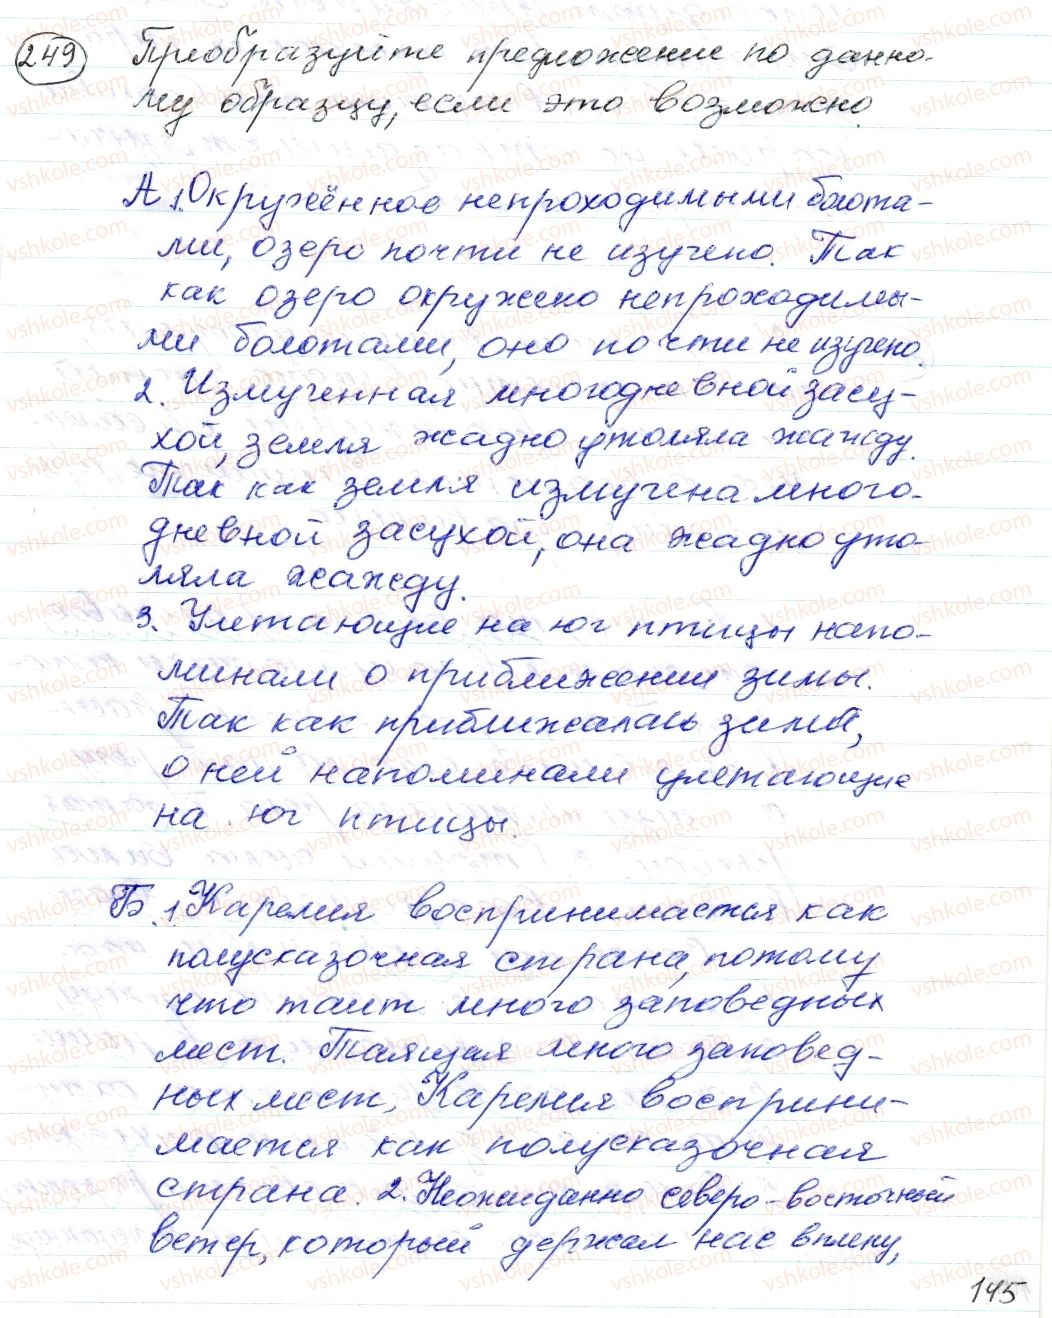 249 Преобразуйте предложение по данно-
му образцу, если это возможно.
А 1. Окружённое непроходимыми болота-
ми, озеро почти не изучено. Так
как озеро окружено непроходимы-
ми болотами, оно почти не изучено.
2. Измученная многодневной засу-
хой, земля жадно утоляла жажду.
Так как земля измучена много-
дневной засухой, она жадно уто-
ляла жажду.
3. Улетающие на юг птицы напо-
минали о приближении зимы.
Так как приближалась зима,
о ней напоминали улетающие
на юг птицы.
Б. 1. Карелия воспринимается как
полусказочная страна, потому
что таит много заповедных
мест. Таящая много заповед-
ных мест, Карелия восприни-
мается как полусказочная
страна. 2. Неожиданно северо-восточный
ветер, который держал нас в плену,
145